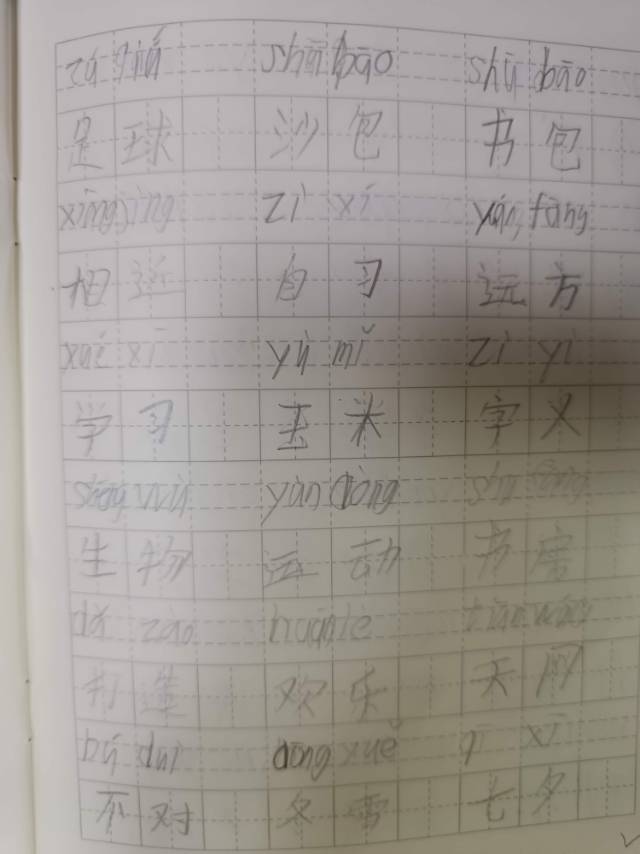 zú qiú shā bāo shū bāo
足 球 沙 包 书 包
zì xí yuán fāng
相 自 习 远 方
xué xí yù mǐ zì yì
学 习 玉 米 字 义
shēng wù yùn dòng
生 物 运 动 书 房
dǎ zào huān lè tiān wǎng
打 造 欢 乐 天 网
bú duì dōng xuě qī xī
不 对 冬 雪 七 夕